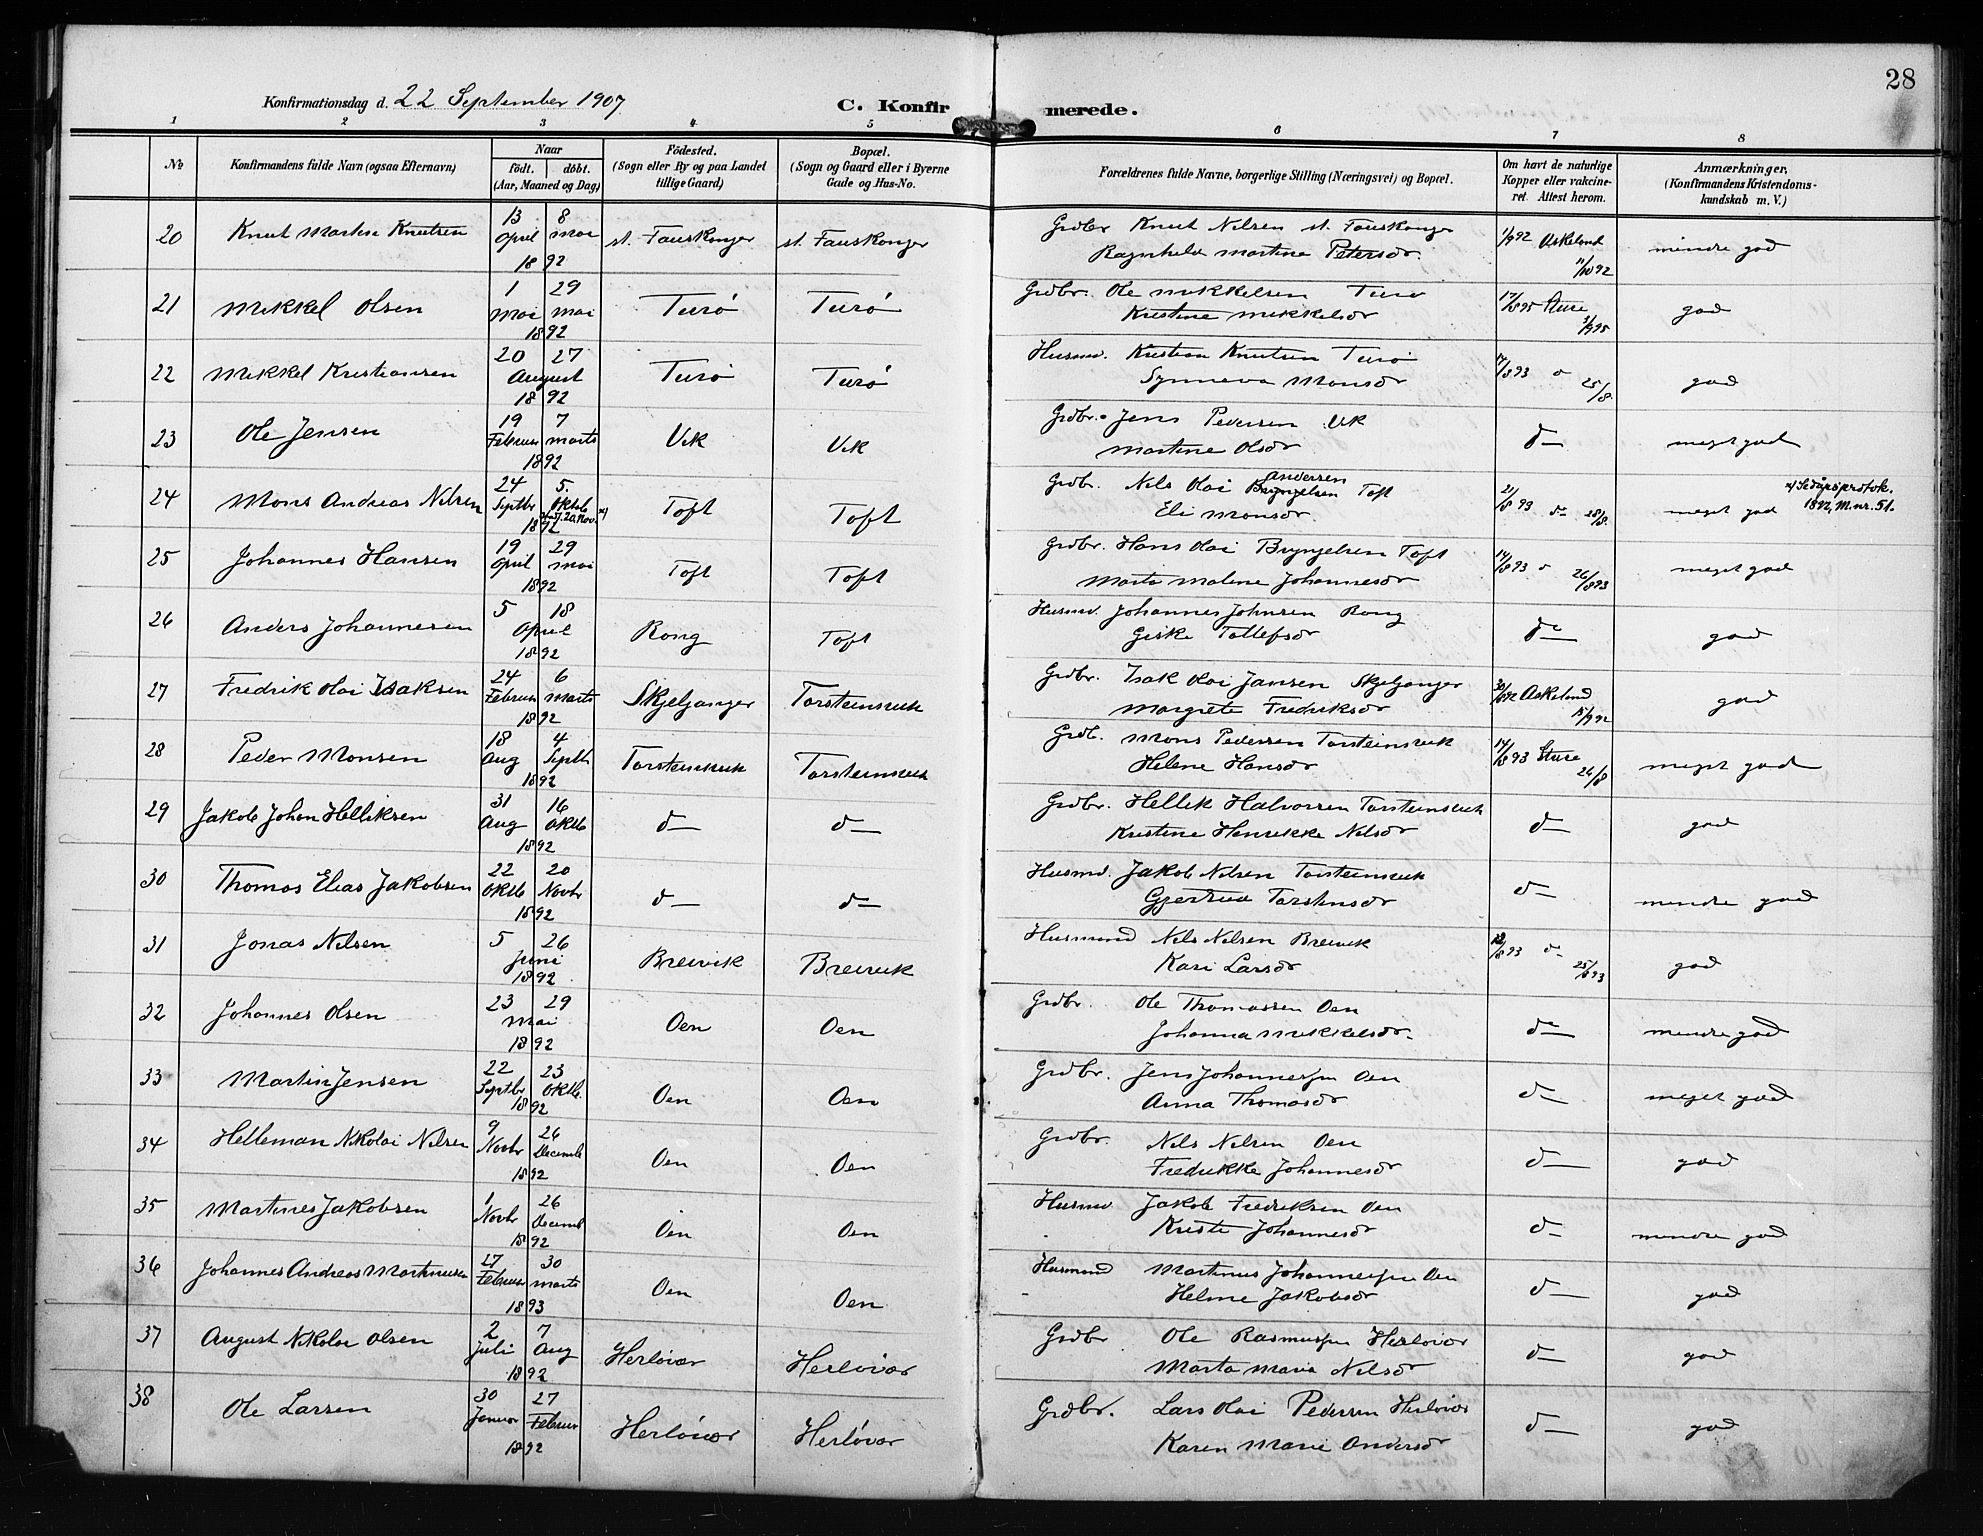 28
Konfirmationsdag d. 22 September 1907
C. Konfirmerede.
1 2 3 4 5 6 7 8
No
Konfirmandens fulde Navn (ogsaa Efternavn)
Naar
født. døbt.
(Aar, Maaned og Dag)
Fødested.
(Sogn eller By og paa Landet
tillige Gaard)
Bopæl.
(Sogn og Gaard eller i Byerne
Gade og Hus-No.
Forældrenes fulde Navne, borgerlige Stilling (Næringsvei) og Bopæl.
Om havt de naturlige
Kopper eller vakcine-
ret. Attest herom.
Anmærkninger.
(Konfirmandens Kristendoms-
kundskab m. V.)
20 Knut Martin Knutsen 13 April 8 Mai 1892 st. Fauskanger st. Fauskanger Grdbr Knut Nilsen st. Fauskanger 1/9 92 Askelund mindre god
Ragnhild Martine Petersdr. 11/10 92
21 Mikkel Olsen 1 Mai 29 Mai 1892 Turø Turø Grdbr. Ole Mikkelsen Turø 17/8 95 Sture god
Kristine Mikkelsdr
22 Mikkel Kristiansen 20 27 August 1892 Turø Turø Husmd. Kristian Knutsen Turø 17/8 93 d 25/8. god
Synneva Monsdr
23 Ole Jensen 19 Februar 7 Marts 1892 Vik Vik Grdbr. Jens Pedersen Vik d— meget god
Martine Olsdr
24 Mons Andreas Nilsen 24 Septbr 5. Oktob 1892 Toft Toft Grdbr. Nils Olai Bryngelsen Andersen Toft 21/8 93 d— 28/8. meget god
Eli Monsdr.
1892, M.nr. 51.
25 Johannes Hansen 19 April 29 Mai 1892 Toft Toft Grdbr. Hans Olai Bryngelsen Toft 14/8 93 d 26/8 93 meget god
Marta Malene Johannesdr
26 Anders Johannesen 5 18 April 1892 Rong Toft Husmd. Johannes Johnsen Rong d— god
Giske Tollefsdr
27 Fredrik Olai Isaksen 24 Februar 6 Marts 1892 Skjeljanger Torsteinsvik Grdbr. Isak Olai Jansen Skjeljanger Askelund god
Margrete Fredriksdr
28 Peder Monsen 18 Aug 4 Septbr 1892 Torsteinsvik Torsteinsvik Grdb. Mons Pedersen Torsteinsvik 14/8 93 Sture 26/8 meget god
Helene Hansdr
29 Jakob Johan Helliksen 31 Aug 16 Oktb 1892 d— d— Grdbr. Hellik Halvorsen Torsteinsvik d— god
Kristine Henrikke Nilsdr
30 Thomas Elias Jakobsen 22 Oktb 20 Novbr 1892 d— d— Husmd. Jakob Nilsen Torsteinsvik d— mindre god
Gjertrud Torstensdr
31 Jonas Nilsen 5 26 Juni 1892. Breivik Breivik Husmand Nils Nilsen Breivik d— 25/8 93 god
Kari Larsdr
32 Johannes Olsen 23 29 Mai 1892 Oen Oen Grdbr. Ole Thomassen Oen d— mindre god
Johanna Mikkelsdr.
33 Martin Jensen 22 Septbr 23 Oktb. 1892 Oen Oen Grdbr. Jens Johannessen Oen d— meget god
Anna Thomasdr
34 Helleman Nikolai Nilsen 9 Novbr 26 Decemb 1892 Oen Oen Grdbr. Nils Nilsen Oen d— god
Fredrikke Johannesdr
35 Martines Jakobsen 1 Novbr 26 Decemb 1892 Oen Oen Husmd Jakob Fredriksen Oen d— mindre god
Kristi Johannesdr
36 Johannes Andreas Martinusen 27 Februar 30 Marts 1893 Oen Oen Husmand Martinus Johannessen Oen d— god
Helene Jakobsdr
37 August Nikolai Olsen 2 Juli 7 Aug 1892 Herløvær Herløvær Grdbr Ole Rasmussen Herløvær d— god
Marta Maria Nilsdr
38 Ole Larsen 30 Januar 27 Februar 1892 Herløvær Herløvær Grdbr. Lars Olai Pedersen Herløvær d— god
Karen Marie Andersdr